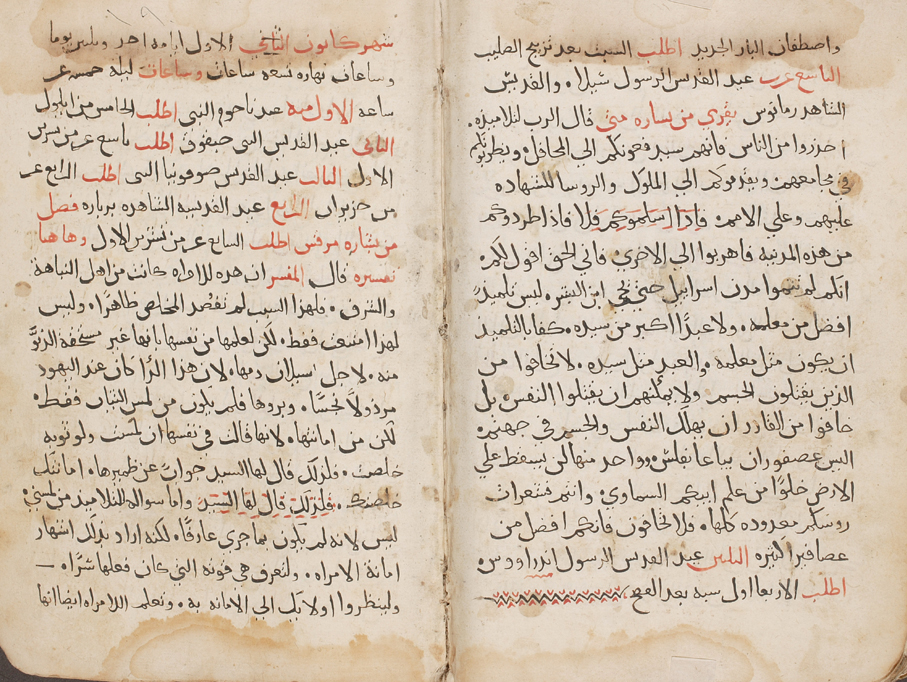 واصطفان البار الجديد اطلب السبت بعد الصليب
التاسع عشر عيد القديس الرسول شيلا. والقديس
الشاهد رمانوس يقري من بشاره متى قال الرب لتلاميذه.
احدروا من الناس فانهم سيدفعونكم الي المحافل. و
في مجامعهم. ويقدموكم الي الملوك والروسا للشهاده
عليهم وعلي الامم. فاذا اسلموكم فلا فاذا طردوكم
من هذه المدينه فاهربوا الى الاخري. فاني الحق اقول لكم.
انكم لم تتموا مدن اسراييل حتي يجي ابن البشر. ليس تلميدًا
افضل من معلمه. ولا عبدًا اكبر من سيده. كفا بالتلميذ
ان يكون مثل معلمه والعبد مثل سيده. لا تخافوا من
الذين يقتلون الجسم. ولا يمكنهم ان يقتلوا النفس بل
خافوا من القادر ان يهلك النفس والجسم في جهنم.
اليس عصفوران يباعا بفلس. وواحد منها لن يسقط علي
الارض خلوًا من علم ابيكم السماوي. وانتم فشعرات
روسكم معدوده كلها. فلا تخافون فانكم افضل من
عصافير كثيره الثلثين عيد القديس الرسول اندراووس.
اطلب الاربعا اول سبه بعد
شهر كانون الثاني الاول ايامه احد وثلثين يوما
وساعات نهاره تسعه ساعات وساعات ليله خمسه عشر
ساعه الاول منه عيد ناحوم النبي اطلب الخامس من ايلول
الثاني عيد القديس النبي حبقوق اطلب تاسع عشر من تشرين
الاول الثالث عيد القديس صوفونيا النبي اطلب الرابع عشر
من حزيران الرابع عيد القديسه الشاهده برباره فصل
من بشاره مرقس اطلب السابع عشر من تشرين الاول وهاهنا
تفسيره قال المفسر ان هذه الامراه كانت من اهل النباهة
والشرف. فلهذا السبب لم تقصد المخلص ظاهرًا. وليس
لهذا امتنعت فقط. لكن لعلمها من نفسها بانها غير مستحقة الدنوّ
منه. لاجل سيلان دمها. لان هذا الدا كان عند اليهود
مرذولاً نجسًا. وبروها فلم يكون من لمس الثياب فقط.
لكن من امانتها. لانها قالت في نفسها ان لمست ولو ثوبه
خلصت. فلذلك قال لها السيد جوابًا عن ضميرها. امانتك
خلصتك. فلذلك قال لها السيد واما سواله للتلاميذ من لمسني.
ليس لانه لم يكون بما جري عارفًا. لكنه اراد بذلك اشهار
امانة الامراه. ولتعرف هي قوته التي كان فعلها سرًا.
ولينظروا اولايك الي الامانه به. وتعلم الامراه ايضا انها